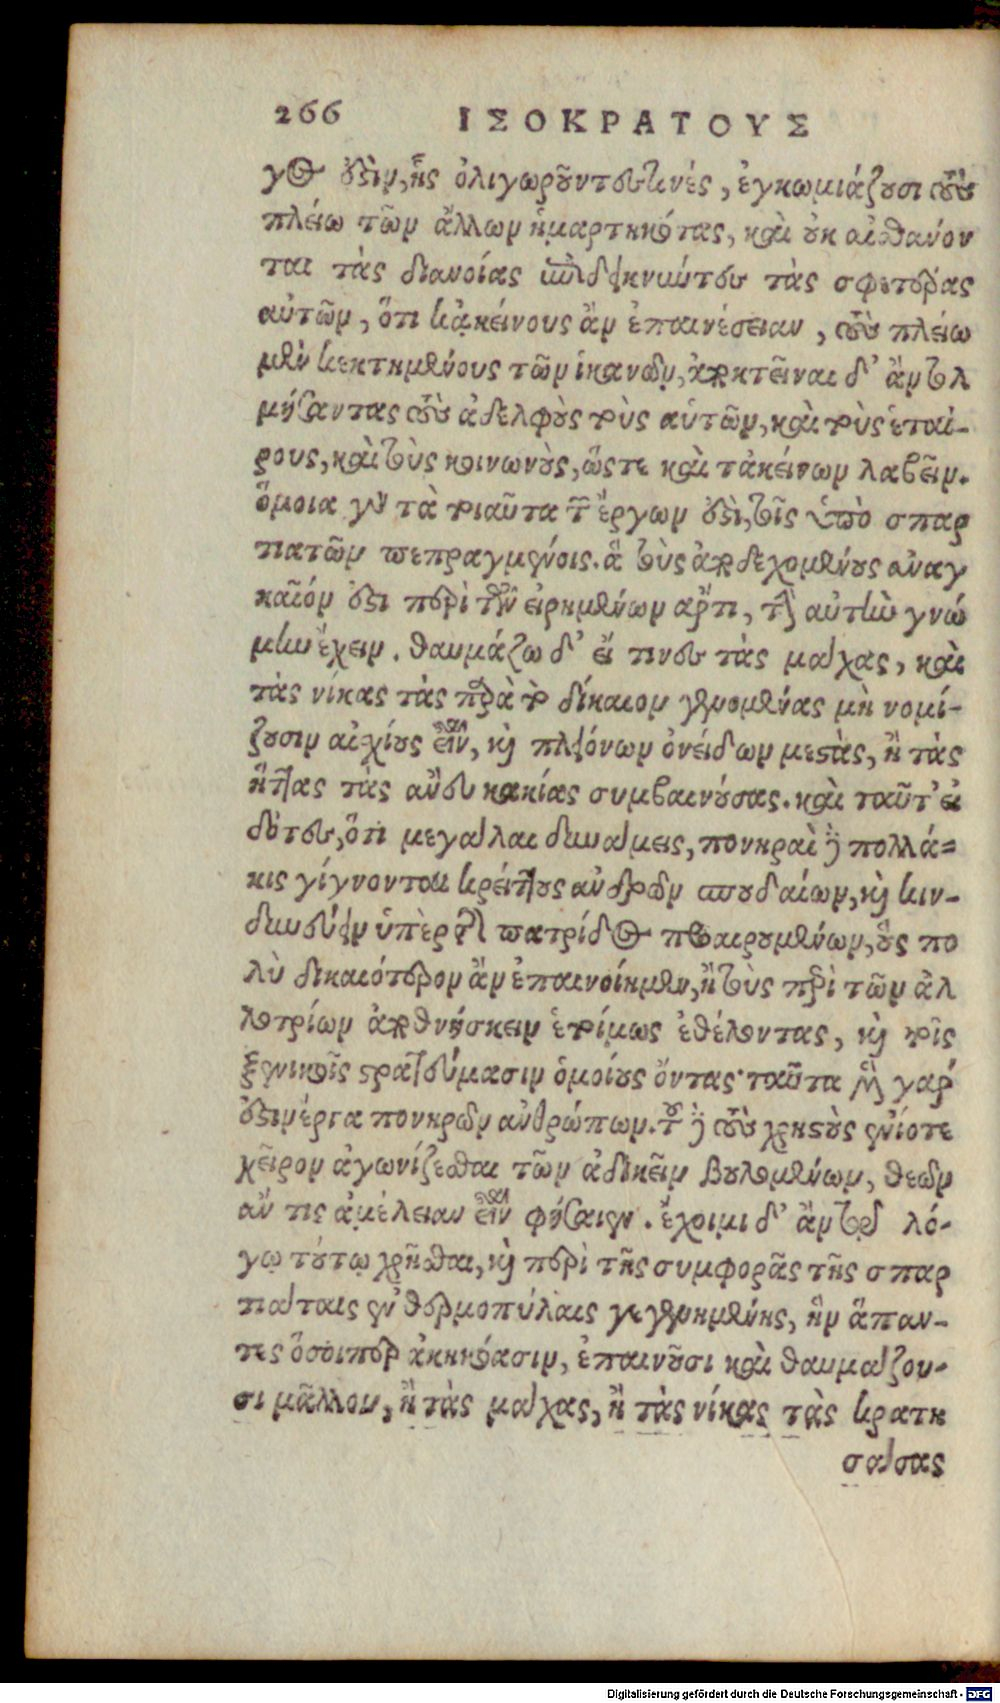 266 ΙΣΟΚΡΑΤΟΥΣ
γος ἐστὶν, ἧς ὀλιγωροῦντές τινές, ἐγκωμιάζουσι τοὺς
πλείω τῶν ἄλλων ἡμαρτηκότας, καὶ οὐκ αἰσθάνον
ται τὰς διανοίας ὑποδεικνύντες τὰς σφετέρας
αὐτῶν, ὅτι κἀκείνους ἂν ἐπαινέσειαν, τοὺς πλείω
μὲν κεκτημένους τῶν ἱκανῶν, ἀποκτεῖναι δ' ἂν τολ
μήσαντας τοὺς ἀδελφοὺς τοὺς αὑτῶν, καὶ τοὺς ἑταί-
ρους, καὶ τοὺς κοινωνοὺς, ὥστε καὶ τἀκείνων λαβεῖν.
ὅμοια γὰρ τὰ τοιαῦτα τῶν ἔργων ἐστὶ, τοῖς ὑπὸ σπαρ
τιατῶν πεπραγμένοις. ἃ τοὺς ἀποδεχομένους ἀναγ
καῖόν ἐστι περὶ τῶν εἰρημένων ἄρτι, τὴν αὐτὴν γνώ
μην ἔχειν. θαυμάζω δ' εἴ τινες τὰς μάχας, καὶ
τὰς νίκας τὰς παρὰ τὸ δίκαιον γενομένας μὴ νομί-
ζουσιν αἰσχίους εἶναι, καὶ πλειόνων ὀνείδων μεστὰς, ἢ τὰς
ἥττας τὰς ἄνευ κακίας συμβαινούσας. καὶ ταῦτ' εἰ
δότες, ὅτι μεγάλαι δυνάμεις, πονηραὶ δὲ πολλά-
κις γίγνονται κρείττους ἀνδρῶν σπουδαίων, καὶ κιν-
δυνεύειν ὑπὲρ τῆς πατρίδος προαιρουμένων, οὓς πο
λὺ δικαιότερον ἂν ἐπαινοίημεν, ἢ τοὺς περὶ τῶν ἀλ
λοτρίων ἀποθνήσκειν ἑτοίμως ἐθέλοντας, καὶ τοῖς
ξενικοῖς στρατεύμασιν ὁμοίους ὄντας· ταῦτα μὲν γάρ
ἐστιν ἔργα πονηρῶν ἀνθρώπων. τὸ δὲ τοὺς χρηστοὺς ἐνίοτε
χεῖρον ἀγωνίζεσθαι τῶν ἀδικεῖν βουλομένων, θεῶν
ἄν τις ἀμέλειαν εἶναι φήσαιεν. ἔχοιμι δ' ἂν τῷ λό-
γῳ τούτῳ χρῆσθαι, καὶ περὶ τῆς συμφορᾶς τῆς σπαρ
τιάταις ἐν θερμοπύλαις γεγενημένης, ἣν ἅπαν-
τες ὅσοιπερ ἀκηκόασιν, ἐπαινοῦσι καὶ θαυμάζου-
σι μᾶλλον, ἢ τὰς μάχας, ἢ τὰς νίκας τὰς κρατη
σάσας
Digitalisierung gefördert durch die Deutsche Forschungsgemeinschaft - DFG